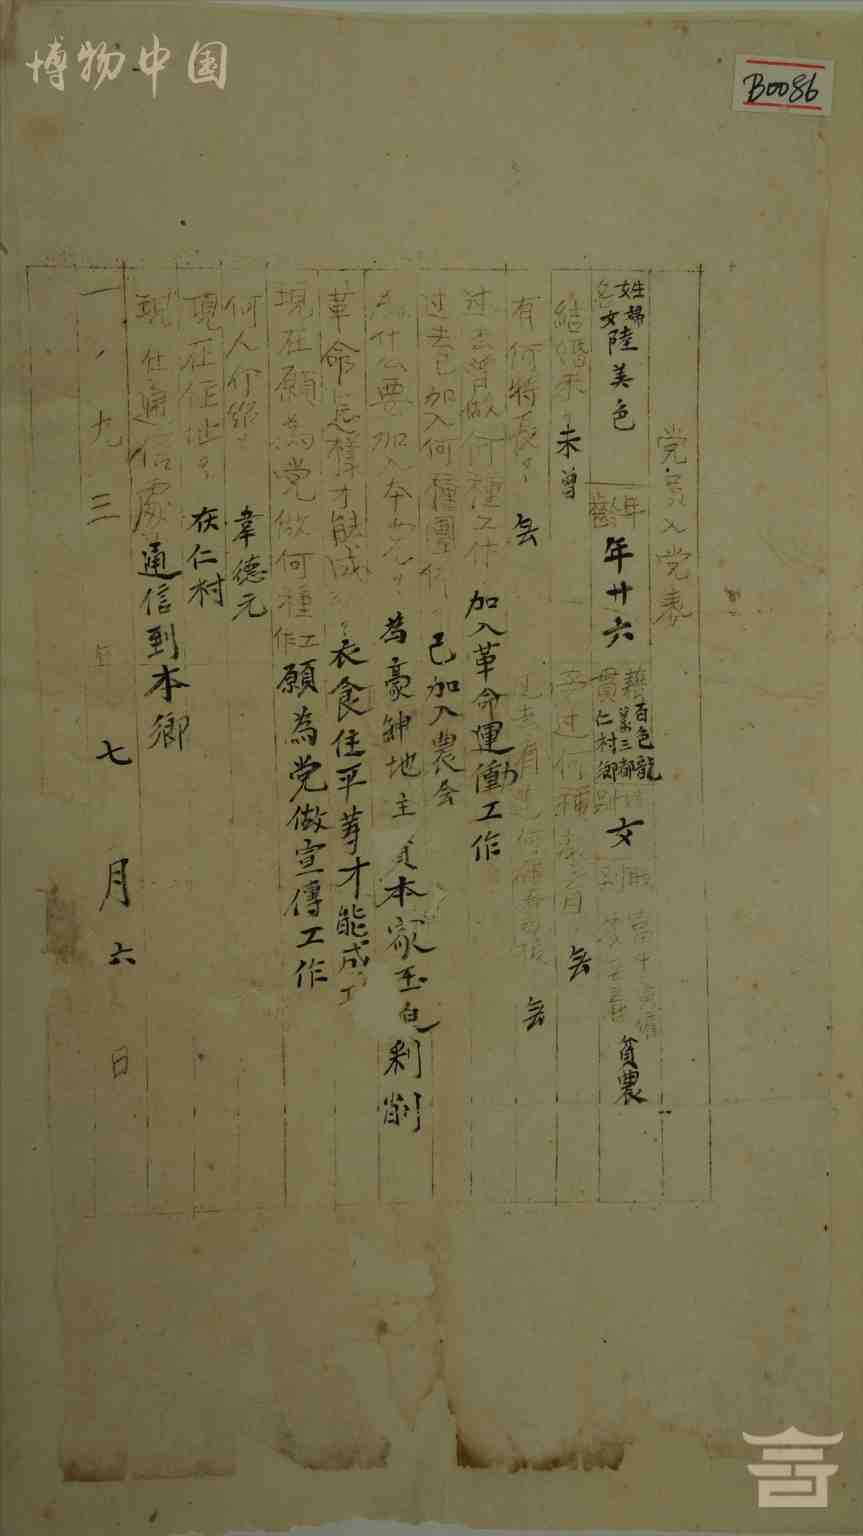 博物中国
B0086
党员入党表
姓名 婦女陸美色 年齡 年廿六 籍貫 百色龍 三都 仁村鄉 別 女 貧農
結婚未? 未曾 過何種 無
有何特長? 無 过去有 何種 無
过去曾做何種工作 加入革命運働工作
过去已加入何種團体? 已加入農会
為什么要加入本党? 為豪紳地主 本家 剥削
革命怎樣才能成功? 衣食住平等才能成工
現在願為党做何種工作 願為党做宣傳工作
何人介紹? 韋德元
現在住址? 在仁村
現在通信處 通信到本鄉
一九三 年七月六日